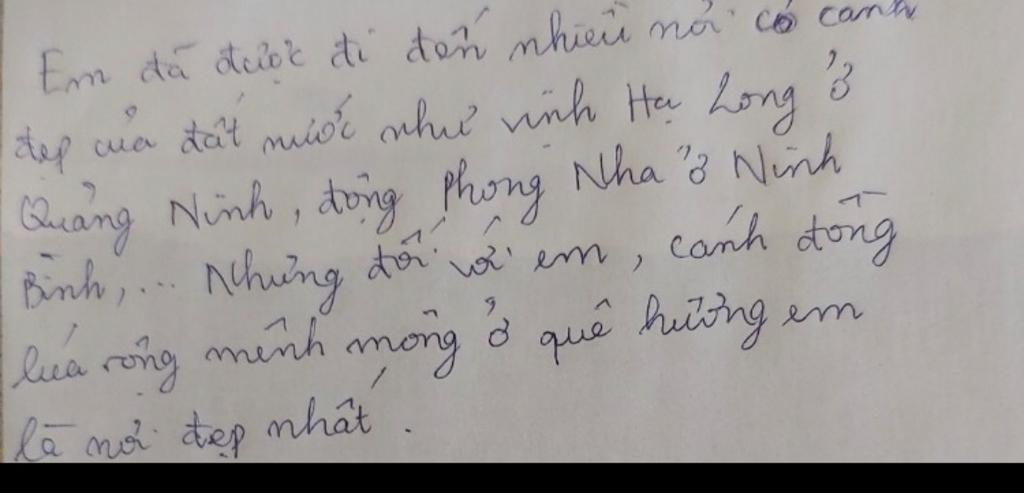 Em đã được đi đến nhiều nơi có cảnh
đẹp của đất nước như vịnh Hạ Long ở
Quảng Ninh, động Phong Nha ở Ninh
Bình,... Nhưng đối với em, cánh đồng
lúa rộng mênh mông ở quê hương em
là nơi đẹp nhất.